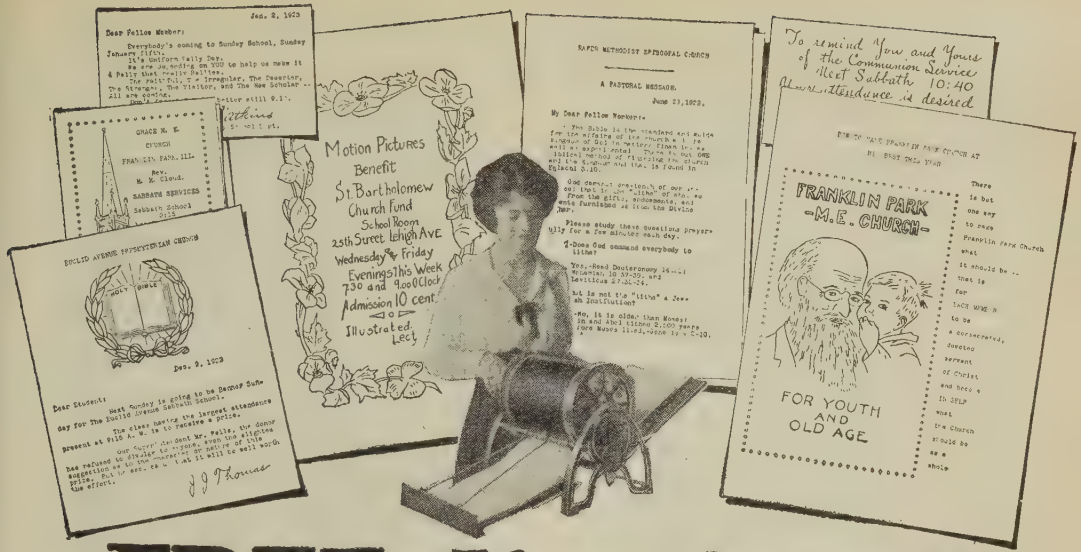 Jan. 2, 1923
Dear Fellow Member:
Everybody's coming to Sunday School, Sunday
January fifth.
It's Uniform Rally Day.
We are depending on YOU to help us make it
a Rally that really Rallies.
The Faithful, The Irregular, The Deserter,
The Stranger, The Visitor, and The New Scholar --
All are coming.
GRACE M. E.
CHURCH
FRANKLIN PARK, ILL.
Rev.
M. M. Cloud.
SABBATH SERVICES
Sabbath School
9:15
EUCLID AVENUE PRESBYTERIAN CHURCH
HOLY BIBLE
Dec. 9, 1923
Dear Student:
Next Sunday is going to be Banner Sun-
day for The Euclid Avenue Sabbath School.
The class having the largest attendance
present at 9:15 A. M. is to receive a prize.
Our Superintendent Mr. Wells, the donor
has refused to divulge to anyone, even the slightest
suggestion as to the character or nature of this
prize. But he that it will be well worth
the effort.
J J Thomas
Motion Pictures
Benefit
St. Bartholomew
Church Fund
School Room
25th Street Lehigh AVE
Wednesday & Friday
Evenings This Week
7.30 and 9.00 O'Clock
Admission 10 cent
Illustrated
Lect
RAPER METHODIST EPISCOPAL CHURCH
A PASTORAL MESSAGE.
June 23, 1922.
My Dear Fellow Worker:-
The Bible is the standard and guide
for the affairs of the church and the
kingdom of God in matters financial as
well as experimental. There is but ONE
Biblical method of financing the church
and the kingdom and that is found in
Malachi 3.10.
God demands one-tenth of our
and that is the "tithe" of
From the gifts, endowments, and
ents furnished us from the Divine
Please study these questions prayer-
ully for a few minutes each day.
1-Does God command everybody to
tithe?
Yes,-Read Deuteronomy
Nehemiah 10 37-39. and
Leviticus 27.31-34.
But is not the "tithe" a Jew-
ish Institution?
-No, it is older than Moses!
in and Abel tithed 2,500 years
fore Moses lived.
To remind You and Yours
of the Communion Service
Next Sabbath 10:40
Your attendance is desired
HOW TO MAKE FRANKLIN PARK CHURCH AT
ITS BEST THIS YEAR
FRANKLIN PARK
-M.E. CHURCH-
FOR YOUTH
AND
OLD AGE
There
is but
one way
to make
Franklin Park Church
what
it should be --
that is
for
EACH MEMBER
to be
a consecrated,
devoted
servant
of Christ
and become
IN SELF
what
the Church
should be
as a
whole